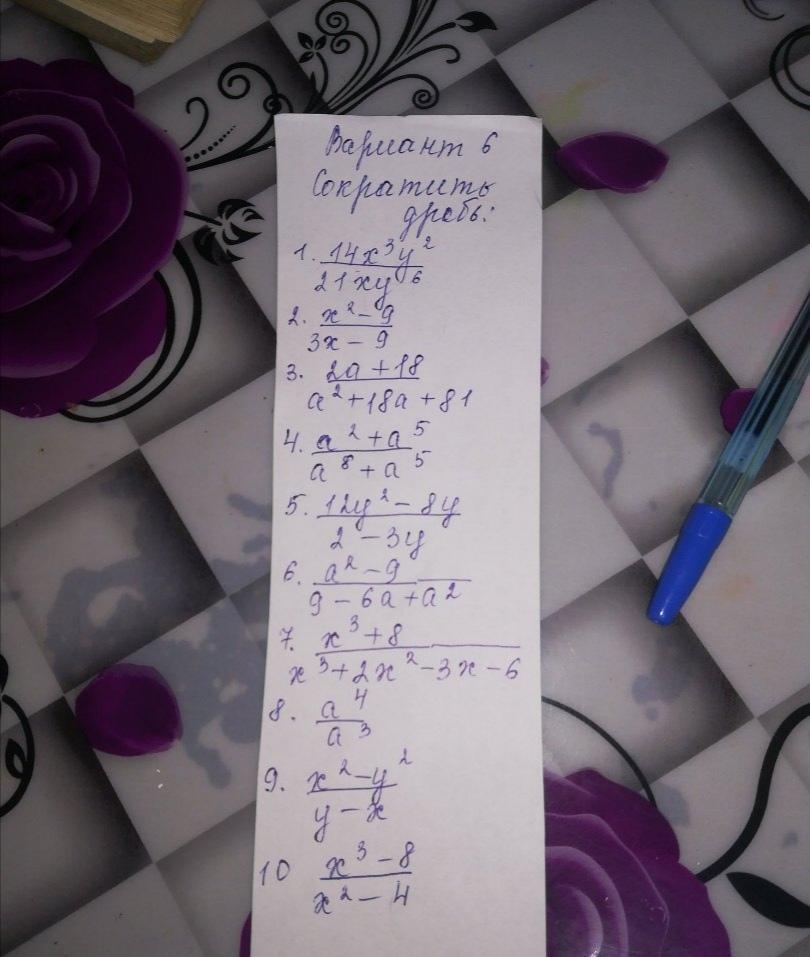 Вариант 6
Сократить
дробь:
1. 14x³y²
21xy⁶
2. x²-9
3x-9
3. 2a+18
a²+18a+81
4. a²+a⁵
a⁸+a⁵
5. 12y²-8y
2-3y
6. a²-9
9-6a+a²
7. x³+8
x³+2x²-3x-6
8. a⁴
a³
9. x²-y²
y-x
10 x³-8
x²-4